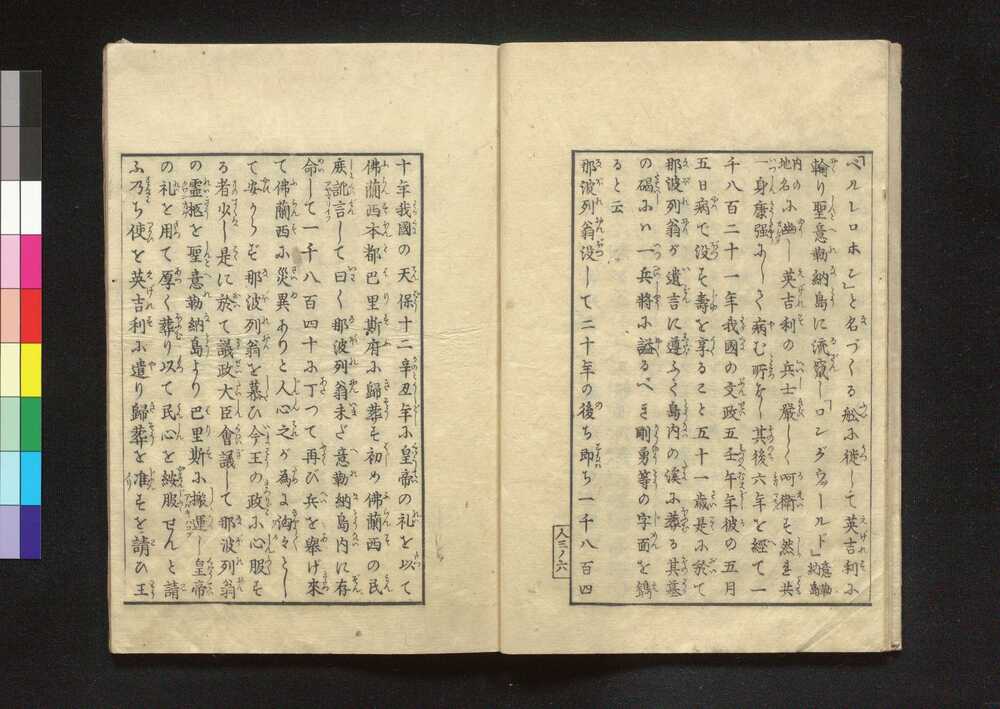 ベルレロホン」と名づくる舩に徙して英吉利に
輸り聖意勒納島に流竄し「ロングウールド」意勒納島
内の地名に幽し英吉利の兵士嚴しく呵衛す然𪜈共
一身康强にして病む所なし其後六年を經て一
千八百二十一年我國の文政五壬午年彼の五月
五日病で没す壽を享ること五十一歳是に於て
那波列翁が遺言に遵ふて島内の溪に葬る其墓
の碣には一兵將に謚るべき剛勇等の字面を鐫
ると云
那波列翁没して二十年の後ち即ち一千八百四
人三ノ六
十年我國の天保十二辛丑年に皇帝の礼を以て
佛蘭西本都巴里斯府に歸葬す初め佛蘭西の民
庶訛言して曰く那波列翁未だ意勒納島内に存
命して一千八百四十に丁つて再び兵を舉げ來
て佛蘭西に災異ありと人心之が為に洶々とし
て安からず那波列翁を慕ひ今王の政に心服す
る者少し是に於て議政大臣會議して那波列翁
の霊柩を聖意勒納島より巴里斯に搬運し皇帝
の礼を用て厚く葬り以て民心を綏服せんと請
ふ乃ち使を英吉利に遣り歸葬を准すを請ひ王